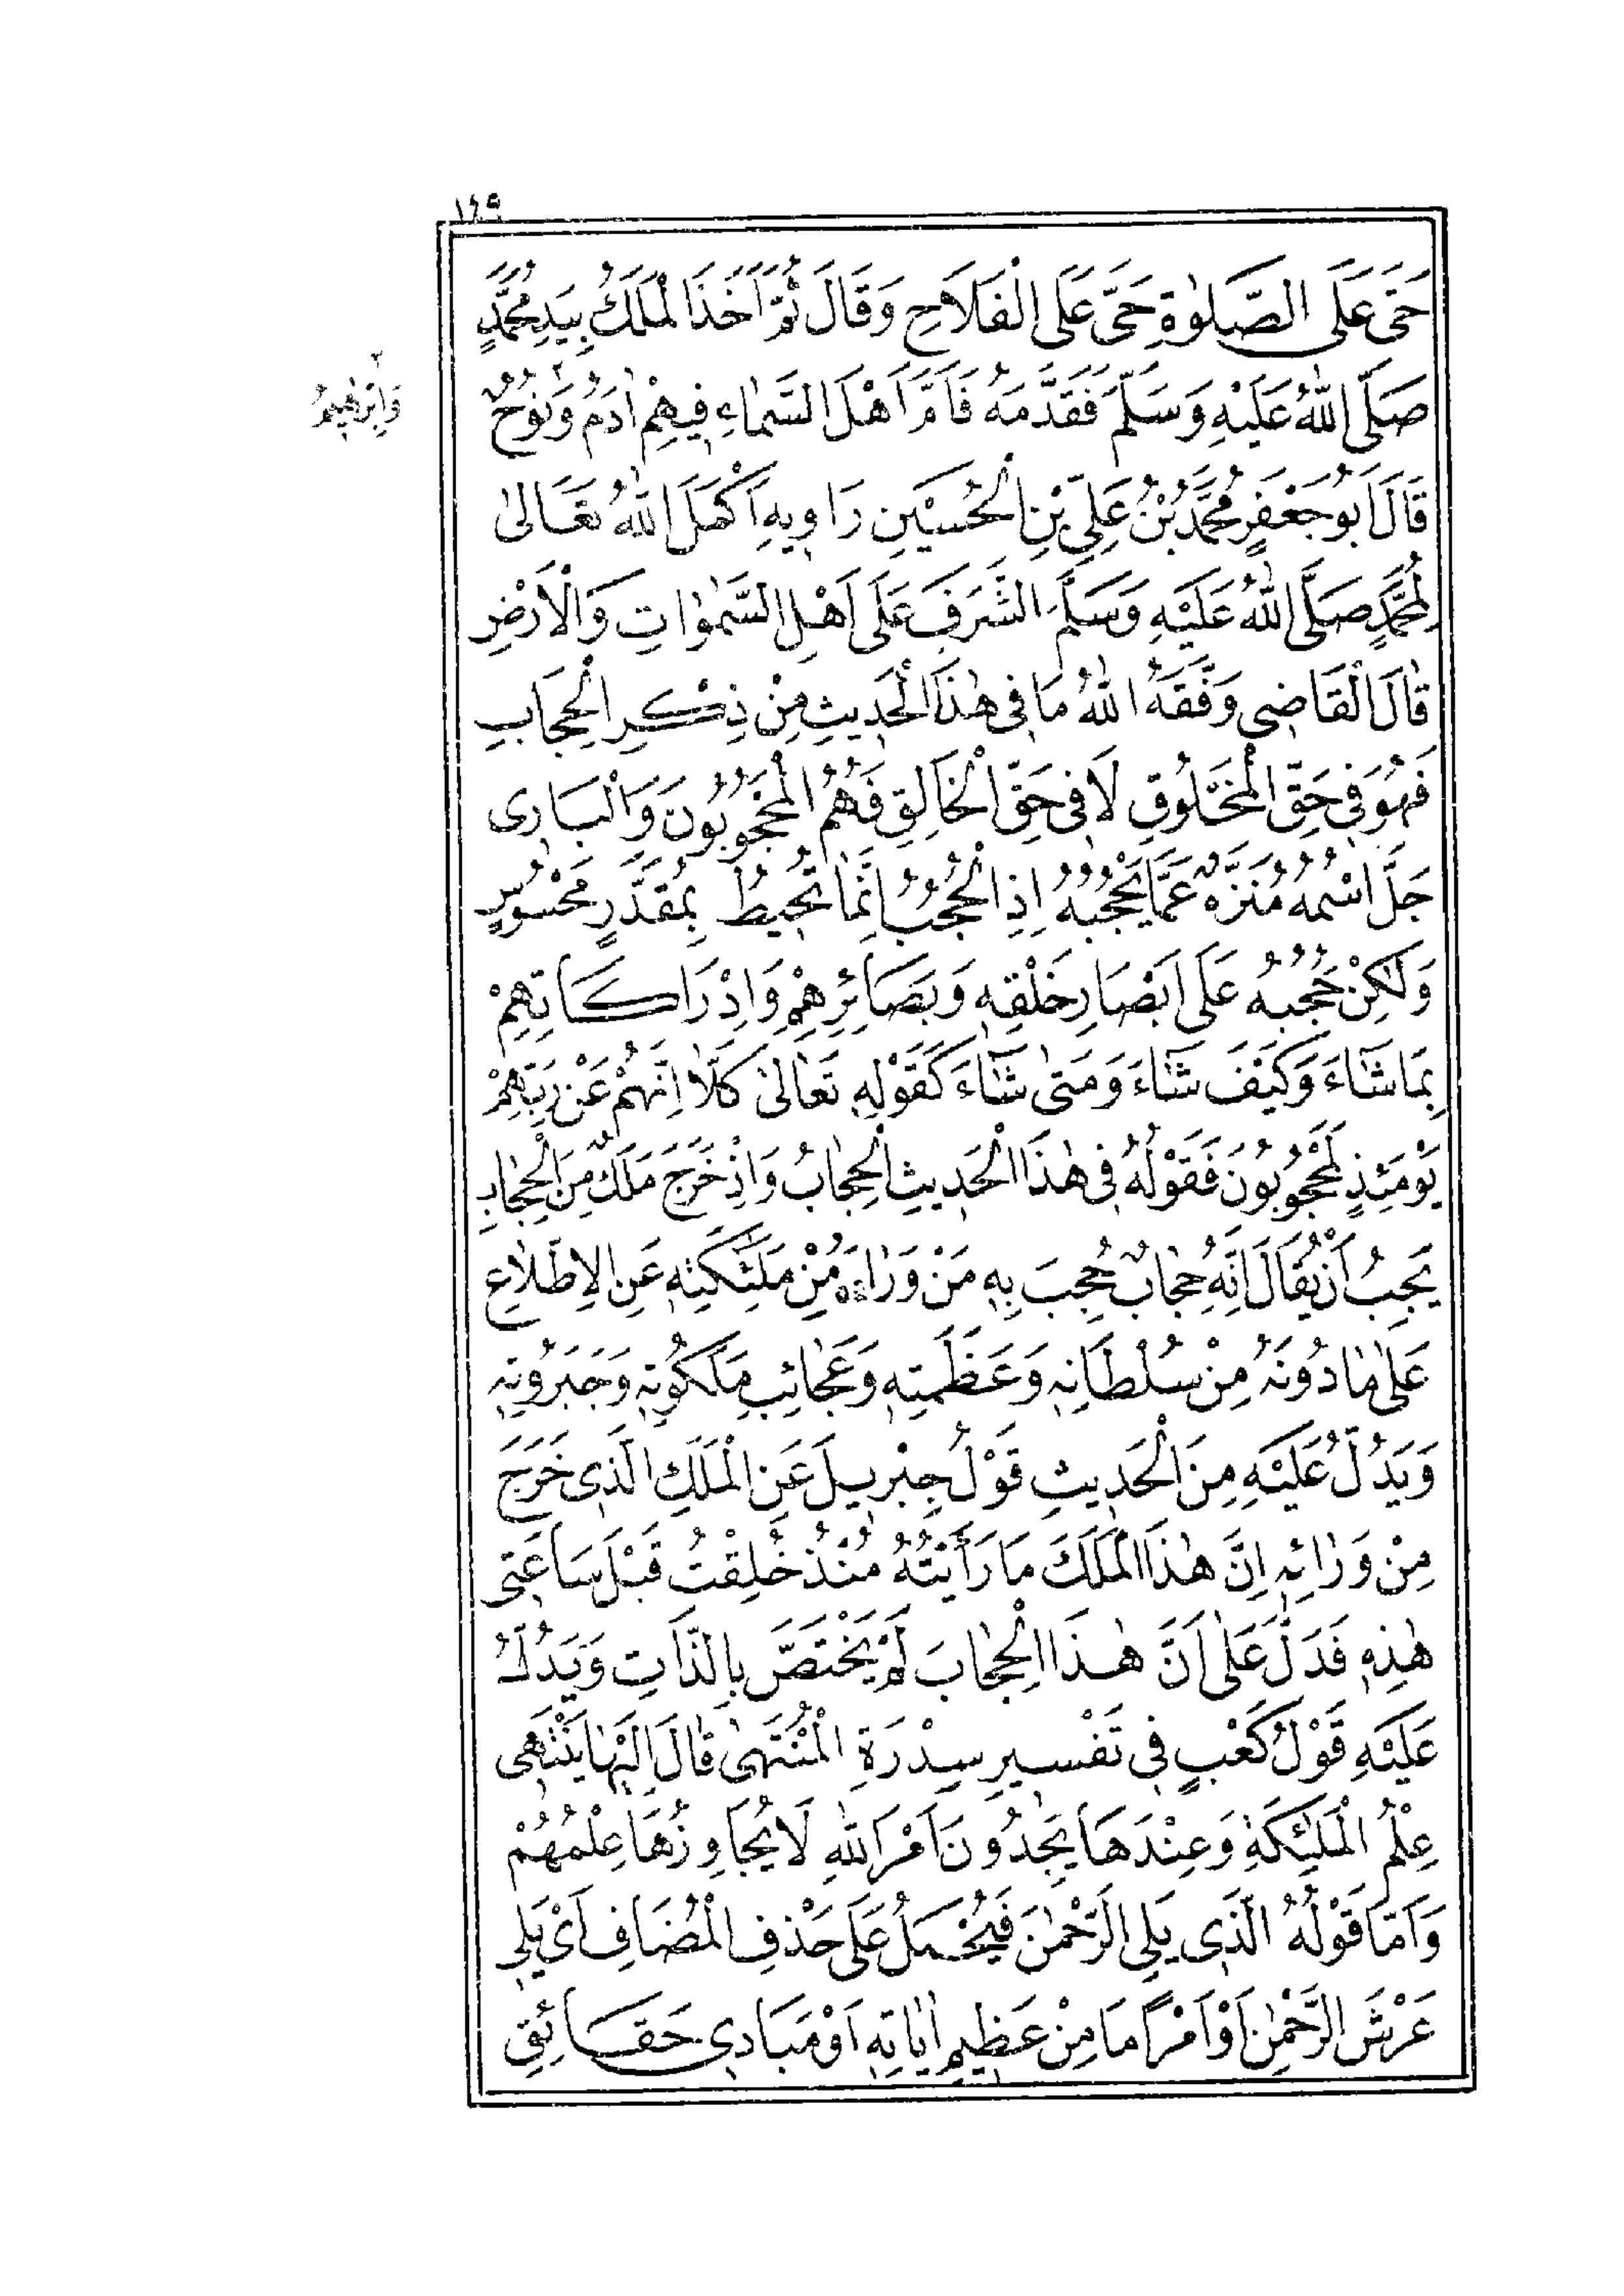 ١٤٩
حَىَّ عَلَى الصَّلٰوةِ حَىَّ عَلَى الْفَلَاحِ وَقَالَ ثُمَّ اَخَذَ الْمَلَكُ بِيَدِ مُحَمَّدٍ
صَلَّى اللّٰهُ عَلَيْهِ وَسَلَّمَ فَقَدَّمَهُ فَاَمَّ اَهْلَ السَّمٰاءِ فِيهِمْ اٰدَمُ وَنُوحٌ
وَاِبْرٰهِيمُ
قَالَ اَبُو جَعْفَرٍ مُحَمَّدُ بْنُ عَلِىِّ بْنِ الْحُسَيْنِ رَاوِيهِ اَكْمَلَ اللّٰهُ تَعَالىٰ
لِمُحَمَّدٍ صَلَّى اللّٰهُ عَلَيْهِ وَسَلَّمَ الشَّرَفَ عَلَى اَهْلِ السَّمٰوٰاتِ وَالْاَرْضِ
قٰالَ الْقَاضِى وَفَّقَهُ اللّٰهُ مَا فِى هٰذَا الْحَدِيثِ مِنْ ذِكْرِ الْحِجَابِ
فَهُوَ فِى حَقِّ الْمَخْلُوقِ لَا فِى حَقِّ الْخَالِقِ فَهُمُ الْمَحْجُوبُونَ وَالْبَارِى
جَلَّ اسْمُهُ مُنَزَّهٌ عَمَّا يَحْجُبُهُ اِذِ الْحُجُبُ اِنَّمَا تُحِيطُ بِمُقَدَّرٍ مَحْسُوسٍ
وَلٰكِنْ حُجُبُهُ عَلَى اَبْصَارِ خَلْقِهِ وَبَصَائِرِهِمْ وَاِدْرَاكَاتِهِمْ
بِمَا شَاءَ وَكَيْفَ شَاءَ وَمَتىٰ شَاءَ كَقَوْلِهِ تَعَالىٰ كَلَّا اِنَّهُمْ عَنْ رَبِّهِمْ
يَوْمَئِذٍ لَمَحْجُوبُونَ فَقَوْلُهُ فِى هٰذَا الْحَدِيثِ الْحِجٰابُ وَاِذْ خَرَجَ مَلَكٌ مِنَ الْحِجٰابِ
يَجِبُ اَنْ يُقَالَ اِنَّهُ حِجٰابٌ حُجِبَ بِهِ مَنْ وَرٰاءَهُ مِنْ مَلٰئِكَتِهِ عَنِ الْاِطِّلَاعِ
عَلىٰ مٰا دُونَهُ مِنْ سُلْطَانِهِ وَعَظَمَتِهِ وَعَجٰائِبِ مَلَكُوتِهِ وَجَبَرُوتِهِ
وَيَدُلُّ عَلَيْهِ مِنَ الْحَدِيثِ قَوْلُ جِبْرِيلَ عَنِ الْمَلَكِ الَّذِى خَرَجَ
مِنْ وَرٰائِهِ اِنَّ هٰذَا الْمَلَكَ مَا رَأَيْتُهُ مُنْذُ خُلِقْتُ قَبْلَ سَاعَتِى
هٰذِهِ فَدَلَّ عَلىٰ اَنَّ هٰذَا الْحِجٰابَ لَمْ يَخْتَصَّ بِالذَّاتِ وَيَدُلُّ
عَلَيْهِ قَوْلُ كَعْبٍ فِى تَفْسِيرِ سِدْرَةِ الْمُنْتَهىٰ قٰالَ اِلَيْهٰا يَنْتَهِى
عِلْمُ الْمَلٰئِكَةِ وَعِنْدَهَا يَجِدُونَ اَمْرَ اللّٰهِ لَا يُجَاوِزُهَا عِلْمُهُمْ
وَاَمَّا قَوْلُهُ الَّذِى يَلِى الرَّحْمٰنَ فَيُحْمَلُ عَلَى حَذْفِ الْمُضَافِ اَىْ يَلِى
عَرْشَ الرَّحْمٰنِ اَوْ اَمْرًا مَا مِنْ عَظِيمِ اٰيَاتِهِ اَوْ مَبَادِى حَقَائِقِ